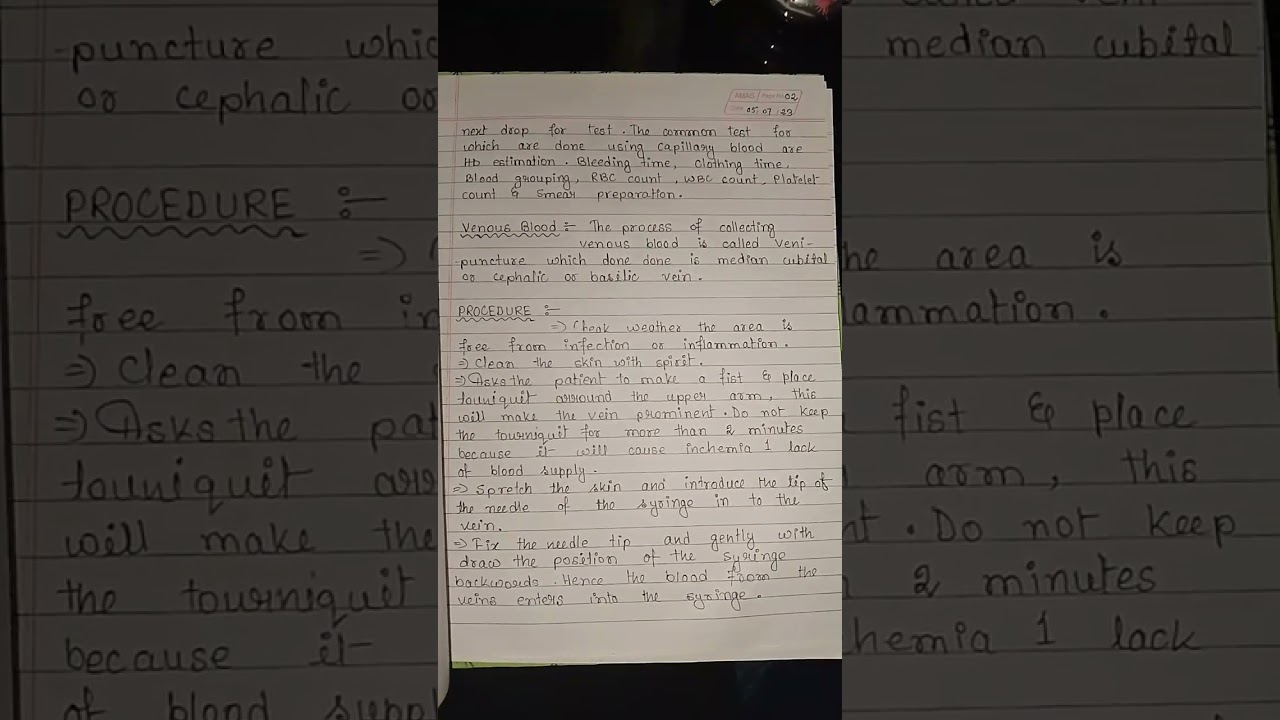 AMAG Page No. 02
Date 05 07 23
next drop for test. The common test for
which are done using capillary blood are
Hb estimation. Bleeding time, Clothing time.
Blood grouping, RBC count, WBC count, Platelet
count & Smear preparation.
Venous Blood :- The process of collecting
venous blood is called Veni-
-puncture which done done is median cubital
or cephalic or basilic vein.
PROCEDURE :-
=> Cheak weather the area is
free from infection or inflammation.
=> Clean the skin with spirit.
=> Asks the patient to make a fist & place
touniquit arround the upper arm, this
will make the vein prominent. Do not keep
the tourniquit for more than 2 minutes
because it will cause inchemia 1 lack
of blood supply.
=> Spretch the skin and introduce the tip of
the needle of the syringe in to the
vein.
=> Fix the needle tip and gently with
draw the position of the syringe
backwords. Hence the blood from the
veins enters into the syringe.